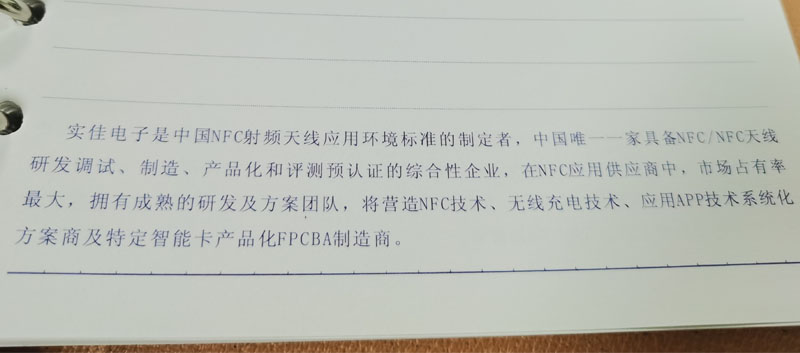 实佳电子是中国NFC射频天线应用环境标准的制定者，中国唯一一家具备NFC/NFC天线
研发调试、制造、产品化和评测预认证的综合性企业，在NFC应用供应商中，市场占有率
最大，拥有成熟的研发及方案团队，将营造NFC技术、无线充电技术、应用APP技术系统化
方案商及特定智能卡产品化FPCBA制造商。